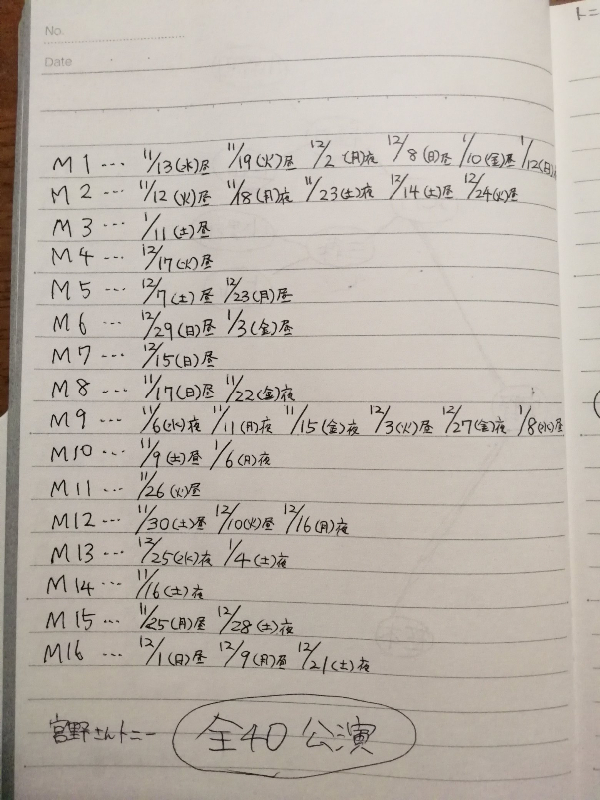 No.
Date
M1 … 11/13(水)昼 11/19(火)昼 12/2(月)夜 12/8(日)昼 1/10(金)昼 1/12(日)
M2 … 11/12(火)昼 11/18(月)夜 11/23(土)夜 12/14(土)昼 12/24(火)昼
M3 … 1/11(土)昼
M4 … 12/17(火)昼
M5 … 12/7(土)昼 12/23(月)昼
M6 … 12/29(日)昼 1/3(金)昼
M7 … 12/15(日)昼
M8 … 11/17(日)昼 11/22(金)夜
M9 … 11/6(水)夜 11/11(月)夜 11/15(金)夜 12/3(火)昼 12/27(金)夜 1/8(水)昼
M10 … 11/9(土)昼 1/6(月)夜
M11 … 11/26(火)昼
M12 … 11/30(土)昼 12/10(火)昼 12/16(月)夜
M13 … 12/25(水)夜 1/4(土)夜
M14 … 11/16(土)夜
M15 … 11/25(月)昼 12/28(土)夜
M16 … 12/1(日)昼 12/9(月)昼 12/21(土)夜
宮野さんトニー 全40公演
トニ